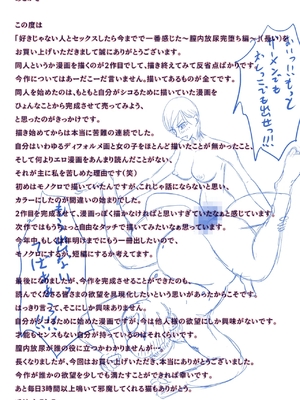 この度は
「好きじゃない人とセックスしたら今までで一番感じた～膣内放尿完堕ち編～」(長い)を
お買い上げいただきまして誠にありがとうございます。
同人というか漫画を描くのが2作目でして、描き終えてみて反省点ばかりです。
今作についてはあーだこーだ言いません。描いてあるものが全てです。
同人を始めたのは、もともと自分がシコるために描いていた漫画を
ひょんなことから完成させて売ってみよう、
と思ったのがきっかけです。
描き始めてからは本当に苦難の連続でした。
自分はいわゆるディフォルメ画と女の子をほとんど描いたことが無かったこと、
そして何よりエロ漫画をあんまり読んだことがない、
それが主に私を苦しめた理由です(笑)
初めはモノクロで描いていたんですが、これじゃ話にならないと思い、
カラーにしたのが間違いの始まりでした。
2作目を完成させて、漫画っぽく描かなければと思いすぎていたなぁと感じています。
次作ではもうちょっと自由なタッチで描いてみたいなぁ思っています。
今年中、もしくは年明けまでにもう一冊出したいので、
モノクロにするか、短編にするか考えてます。
最後になりましたが、今作を完成させることができたのも、
読んでくださる皆さまの欲望を具現化したいという思いがあったからこそです。
はっきり言って、そこにしか興味ありません。
自分がシコるために始めた漫画ですが、今は他人様の欲望にしか興味がないです。
才能もセンスもない自分が持っているのはそれくらいです。
膣内放尿が誰の役に立つかわかりませんが…、
長くなりましたが、今回はお買い上げいただき、本当にありがとうございました。
今作が誰かの欲望を少しでも満たすことができれば幸いです。
あと毎日3時間以上鳴いて邪魔してくれる猫もありがとう。